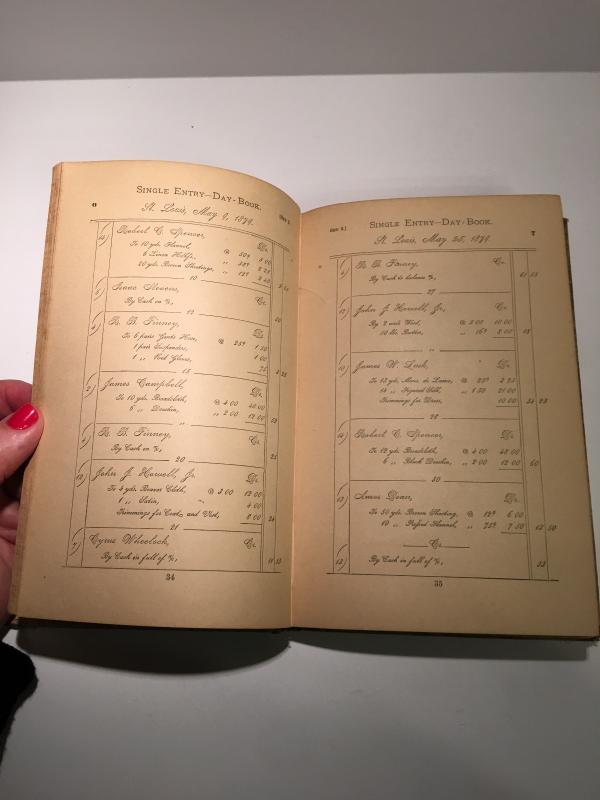 6
SINGLE ENTRY—DAY-BOOK.
St. Louis, May 9, 1879.
Robert C. Spencer, Dr.
To 10 yds. Flannel, @ 50¢ 5 00
20 yds. Brown Shirtings, „ 12¢ 2 40
10
Isaac Stevens, Cr.
By Cash on %, 50
12
R. B. Finney, Dr.
To 6 pairs Gents Hose, @ 25¢ 1 50
1 pair Suspenders, 1 00
1 „ Kid Gloves,
15
James Campbell, Dr.
To 10 yds. Broadcloth, @ 4 00 40 00
6 „ Doeskin, „ 2 00 12 00 52
„
R. B. Finney, Cr.
By Cash on %, 25
20
John J. Howell, Jr. Dr.
To 4 yds. Beaver Cloth, @ 3 00 12 00
1 „ Satin, 4 00
Trimmings for Coats and Vest, 8 00 24
21
Cyrus Wheelock, Cr.
By Cash in full of %,
34
7
SINGLE ENTRY—DAY-BOOK.
St. Louis, May 25, 1879.
R. B. Finney, Cr.
By Cash to balance %,
27
John J. Howell, Jr. Cr.
By 2 cords Wood, @ 5 00 10 00
„
James W. Lusk, Dr.
14 „ Figured Silk, „ 1 50 21 00
Trimmings for Dress, 10 00
28
Robert C. Spencer, Dr.
To 12 yds. Broadcloth, @ 4 00 48 00
6 „ Black Doeskin, „ 2 00 12 00 60
30
Amos Dean, Dr.
To 50 yds. Brown Sheeting, @ 12¢ 6 00
10 „ Flannel, „ 75¢ 7 50 13 50
Cr.
By Cash in full of %,
35